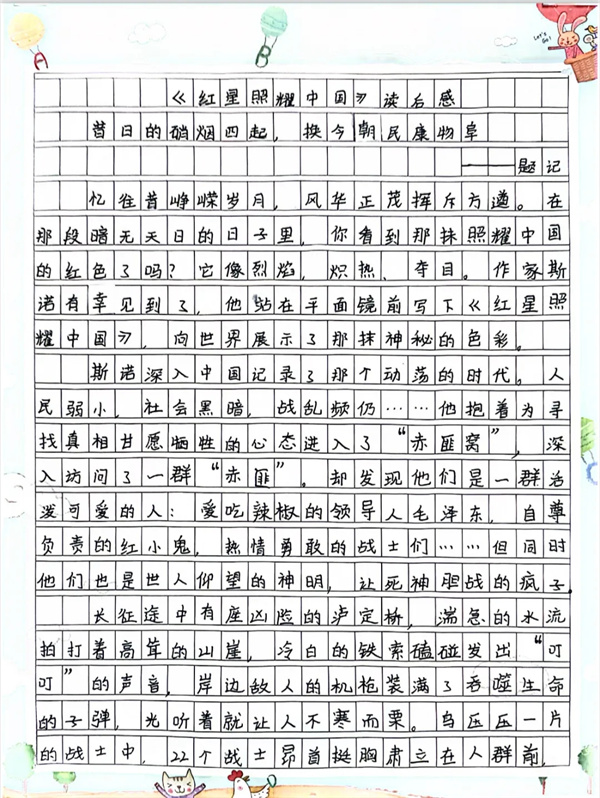 A
B
Let's Go!
《红星照耀中国》读后感
昔日的硝烟四起，换今朝民康物阜
——题记
忆往昔峥嵘岁月，风华正茂挥斥方遒。在
那段暗无天日的日子里，你看到那抹照耀中国
的红色了吗？它像烈焰，炽热、夺目。作家斯
诺有幸见到了，他站在平面镜前写下《红星照
耀中国》，向世界展示了那抹神秘的色彩。
斯诺深入中国记录了那个动荡的时代。人
民弱小，社会黑暗，战乱频仍……他抱着为寻
找真相甘愿牺牲的心态进入了“赤匪窝”，深
入访问了一群“赤匪”。却发现他们是一群活
泼可爱的人：爱吃辣椒的领导人毛泽东，自尊
负责的红小鬼，热情勇敢的战士们……但同时
他们也是世人仰望的神明，让死神胆战的疯子。
长征途中有座凶险的泸定桥，湍急的水流
拍打着高耸的山崖，冷白的铁索磕碰发出“叮
叮”的声音，岸边敌人的机枪装满了吞噬生命
的子弹，光听着就让人不寒而栗。乌压压一片
的战士中，22个战士昂首挺胸肃立在人群前，